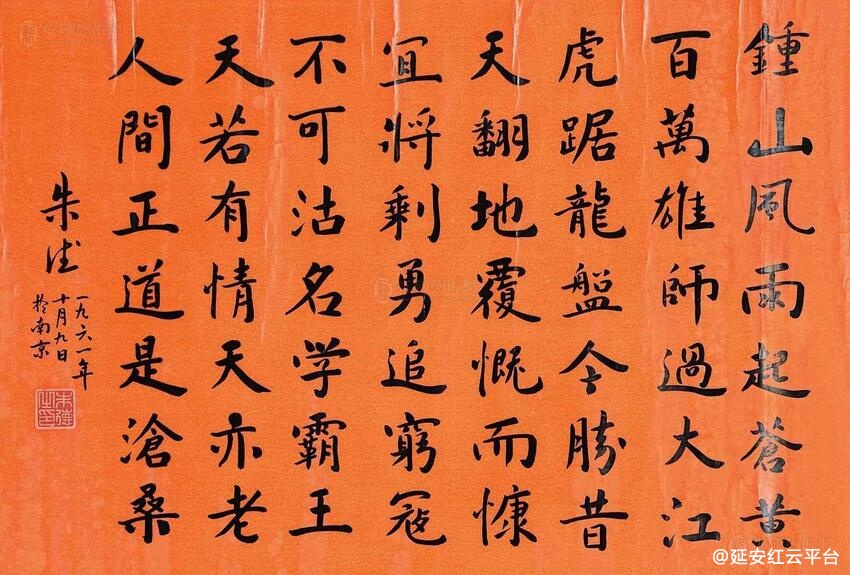 鍾山風雨起蒼黄
百萬雄師過大江
虎踞龍盤今勝昔
天翻地覆慨而慷
宜將剩勇追窮寇
不可沽名学霸王
天若有情天亦老
人間正道是滄桑
朱德
一九六一年
十月九日
於南京
朱德之印
@延安红云平台